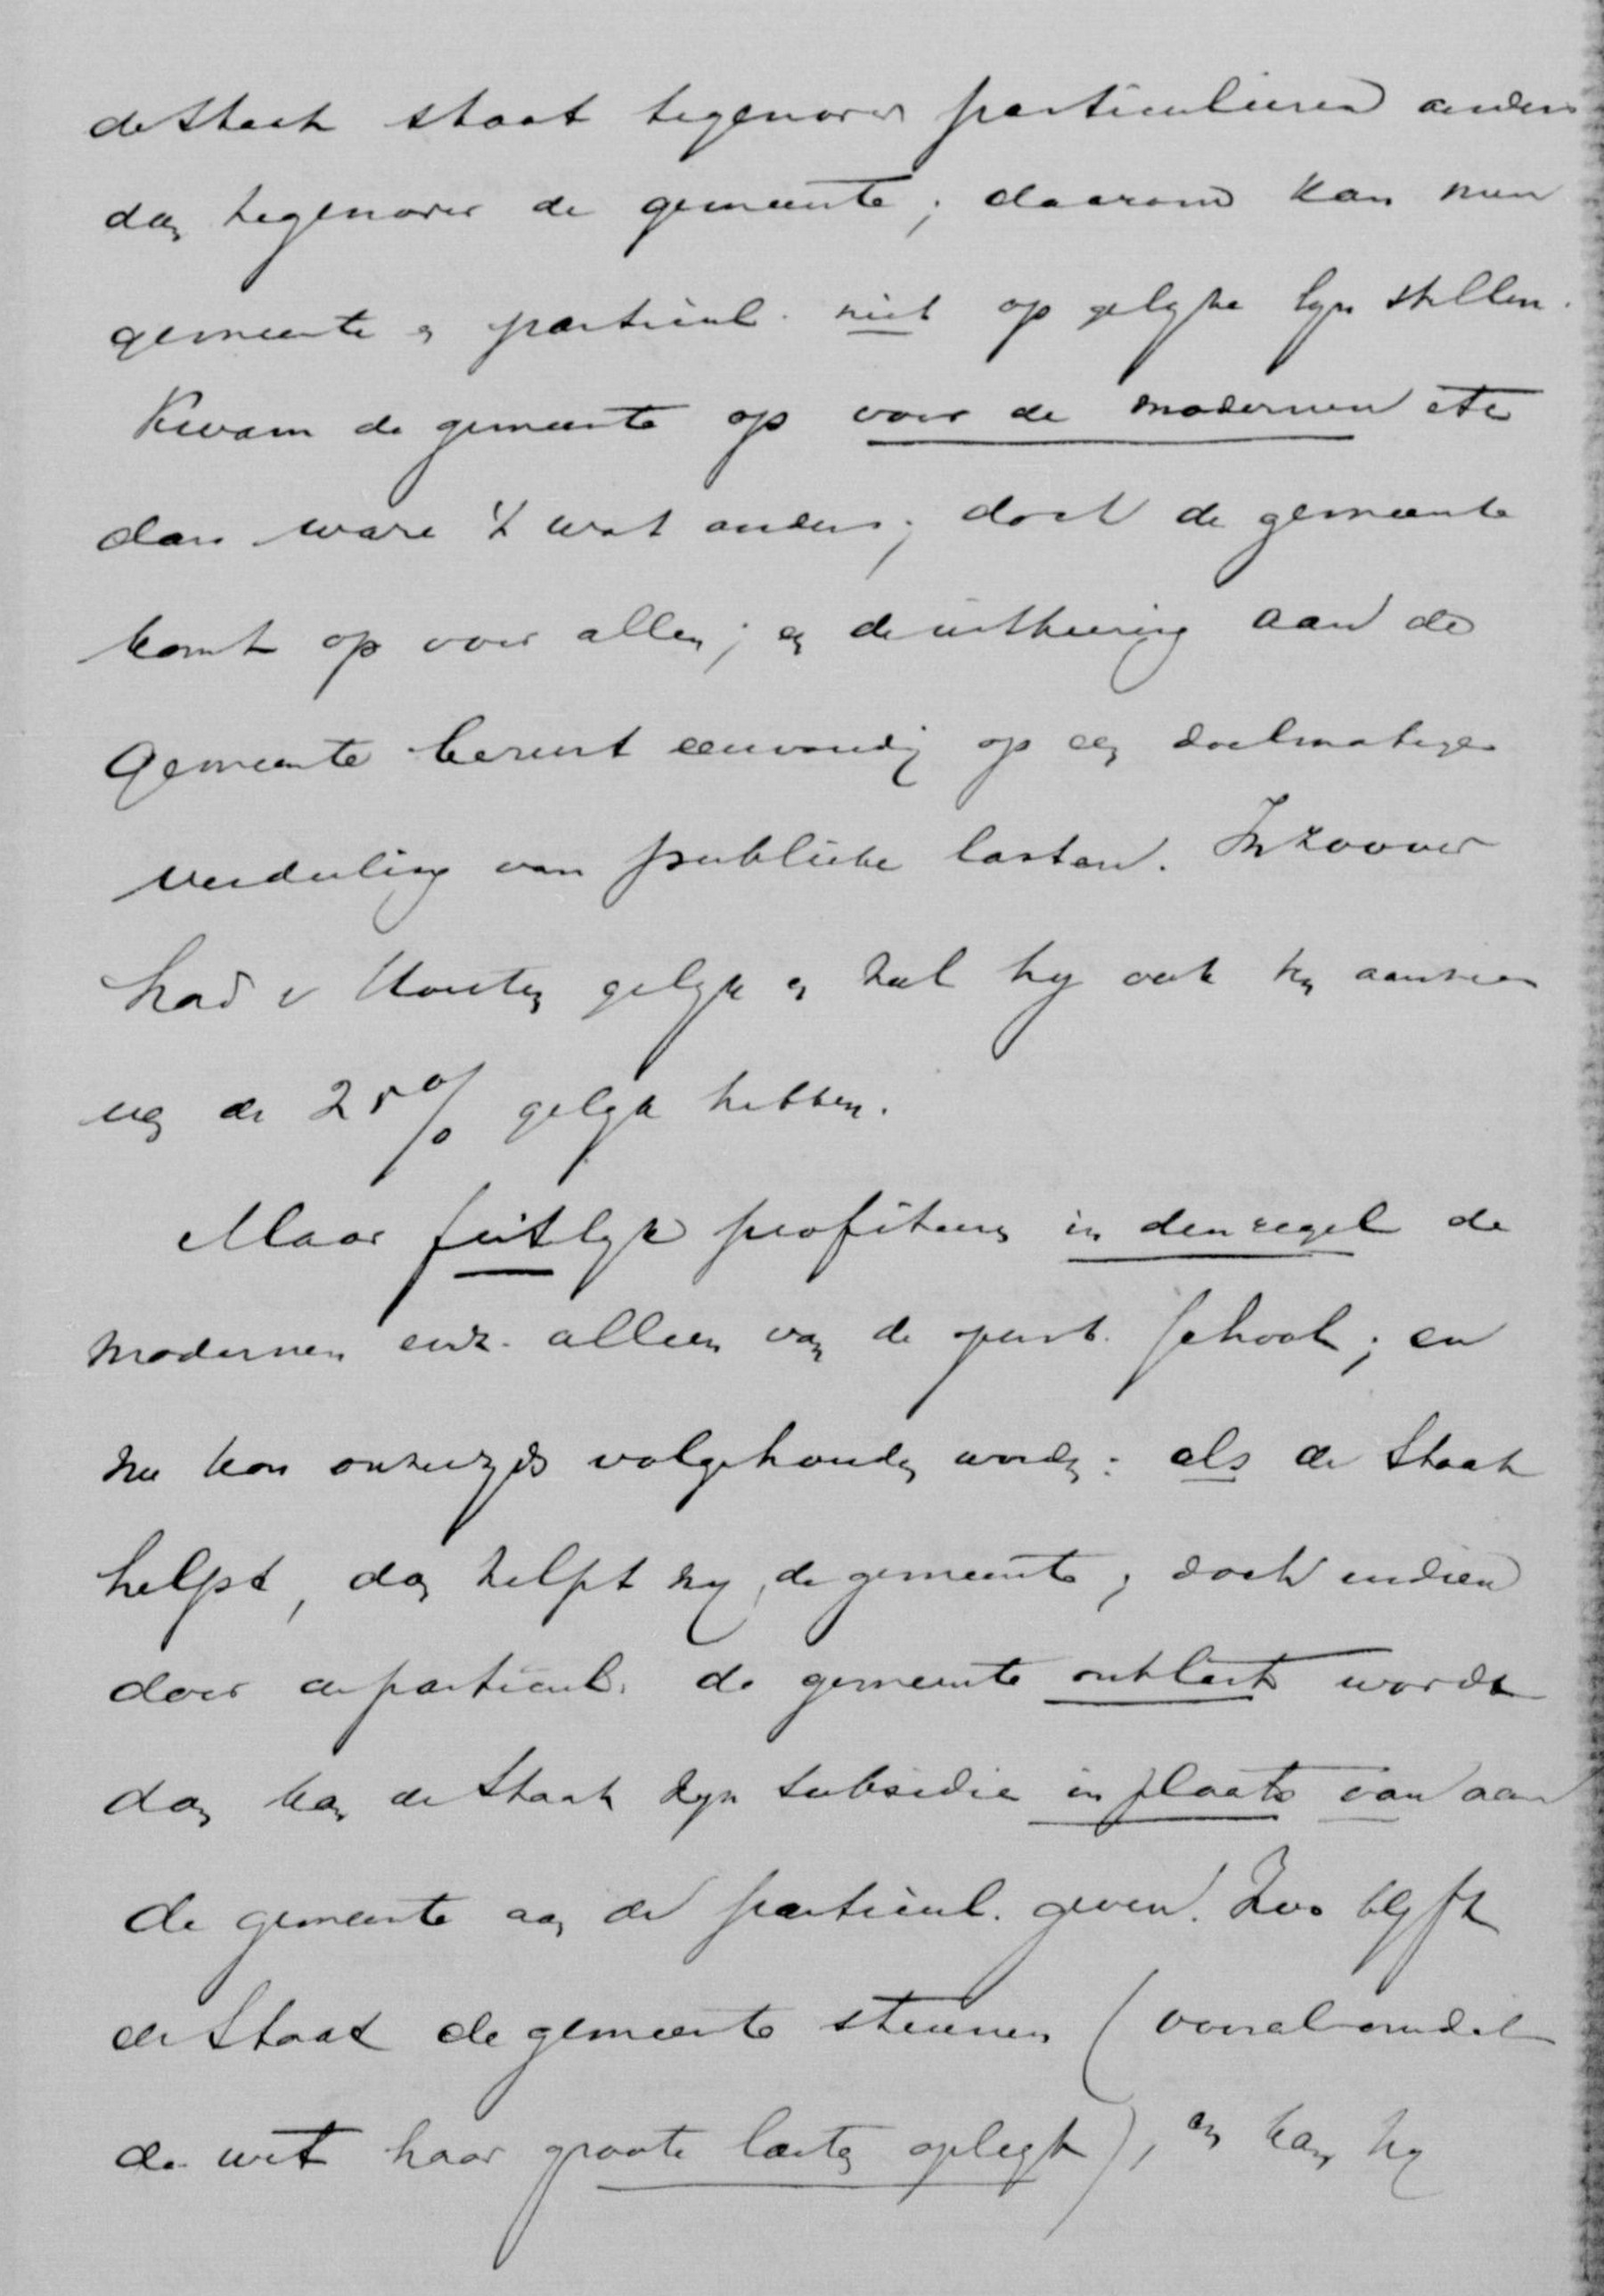 de Staat staat tegenover particulieren anders
dan tegenover de gemeente; daarom kan men
gemeente en particul. niet op gelyke lyn stellen.
Kwam de gemeente op voor de modernen etc
dan ware 't wat anders; doch de gemeente
komt op voor allen; en de uitkeering aan de
Gemeente berust eenvoudig op een doelmatige
verdeeling van publieke lasten. In zoover
had v Houten gelyk en zal hy ook ten aanzien
van de 25% gelyk hebben.
Maar feitlyk profiteeren in den regel de
modernen enz. alleen van de openb. school; en
nu kan onzerzyds volgehouden worden: als de Staat
helpt, dan helpt hy de gemeente; doch indien
door de particul. de gemeente ontlast wordt
dan kan de Staat zyn subsidie in plaats van aan
de gemeente aan de particul. geven. Zoo blyft
de Staat de gemeente steunen (vooral omdat
de wet haar groote lasten oplegt), en kan hy